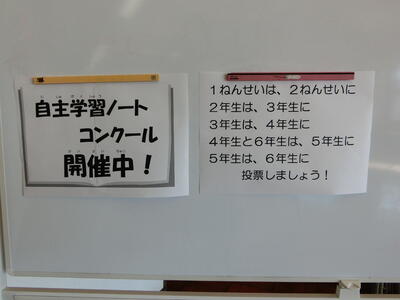 自主学習ノート
コンクール
開催中！
１ねんせいは、２ねんせいに
２年生は、３年生に
３年生は、４年生に
４年生と６年生は、５年生に
５年生は、６年生に
投票しましょう！